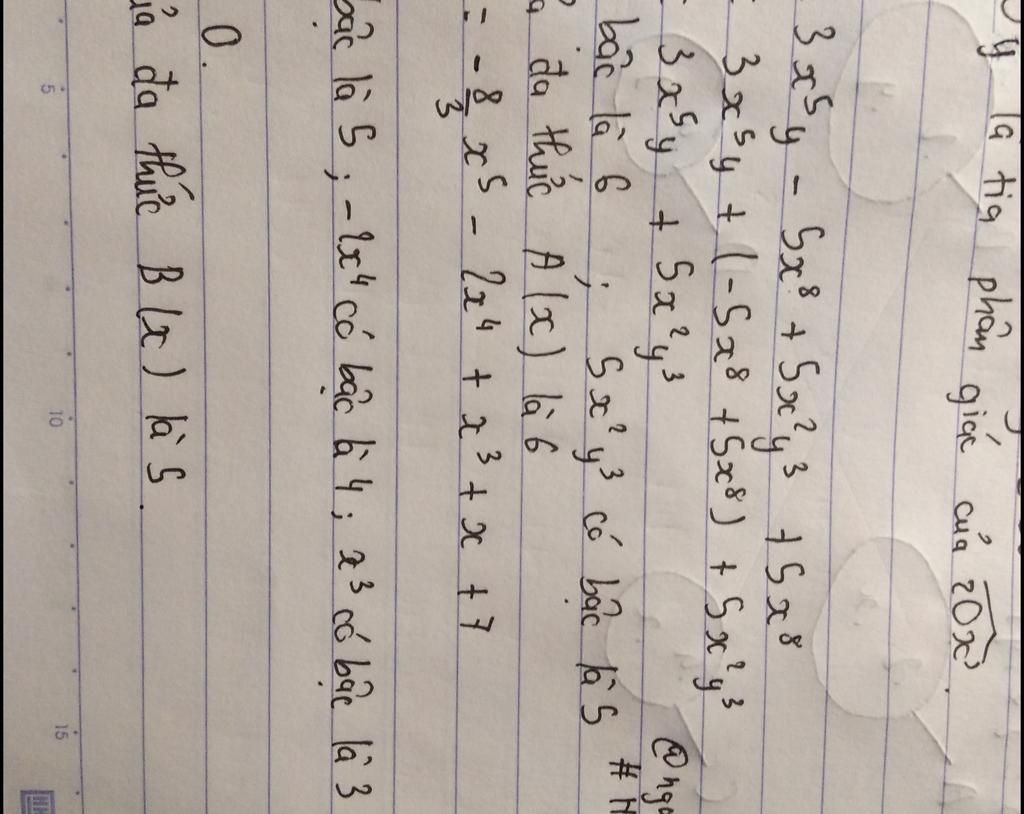 y là tia phân giác của zOx.
3x⁵y - 5x⁸ + 5x²y³ + 5x⁸
3x⁵y + (-5x⁸ + 5x⁸) + 5x²y³
3x⁵y + 5x²y³
bậc là 6; 5x²y³ có bậc là 5
đa thức A(x) là 6
= -8/3 x⁵ - 2x⁴ + x³ + x + 7
bậc là 5; -2x⁴ có bậc là 4; x³ có bậc là 3
0.
đa thức B(x) là 5.
5 10 15